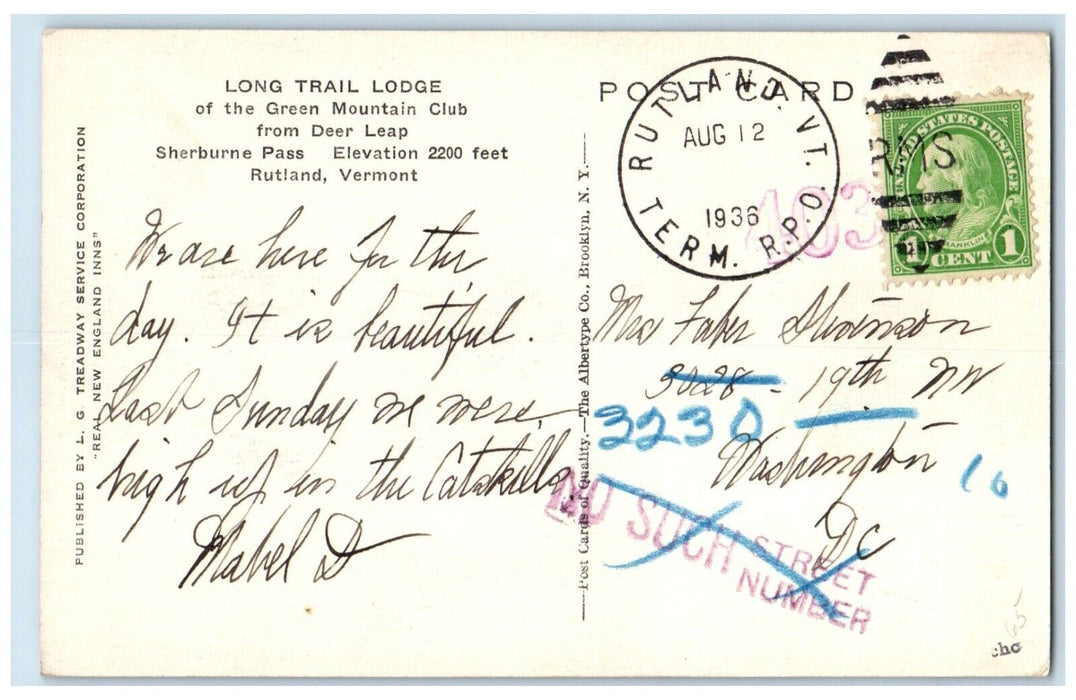 LONG TRAIL LODGE
of the Green Mountain Club
from Deer Leap
Sherburne Pass Elevation 2200 feet
Rutland, Vermont
PUBLISHED BY L. G. TREADWAY SERVICE CORPORATION
"REAL NEW ENGLAND INNS"
We are here for the
day. It is beautiful.
Last Sunday we were
high up in the Catskills
Mabel D
Post Cards of Quality.—The Albertype Co., Brooklyn, N. Y.
POST CARD
RUTLAND, VT.
AUG 12
1936
TERM. R.P.O.
RMS
403
UNITED STATES POSTAGE
FRANKLIN
1 CENT 1
Mrs Faber Stevenson
3028 - 19th NW
3230
Washington
16
DC
NO SUCH STREET
NUMBER
65
chc